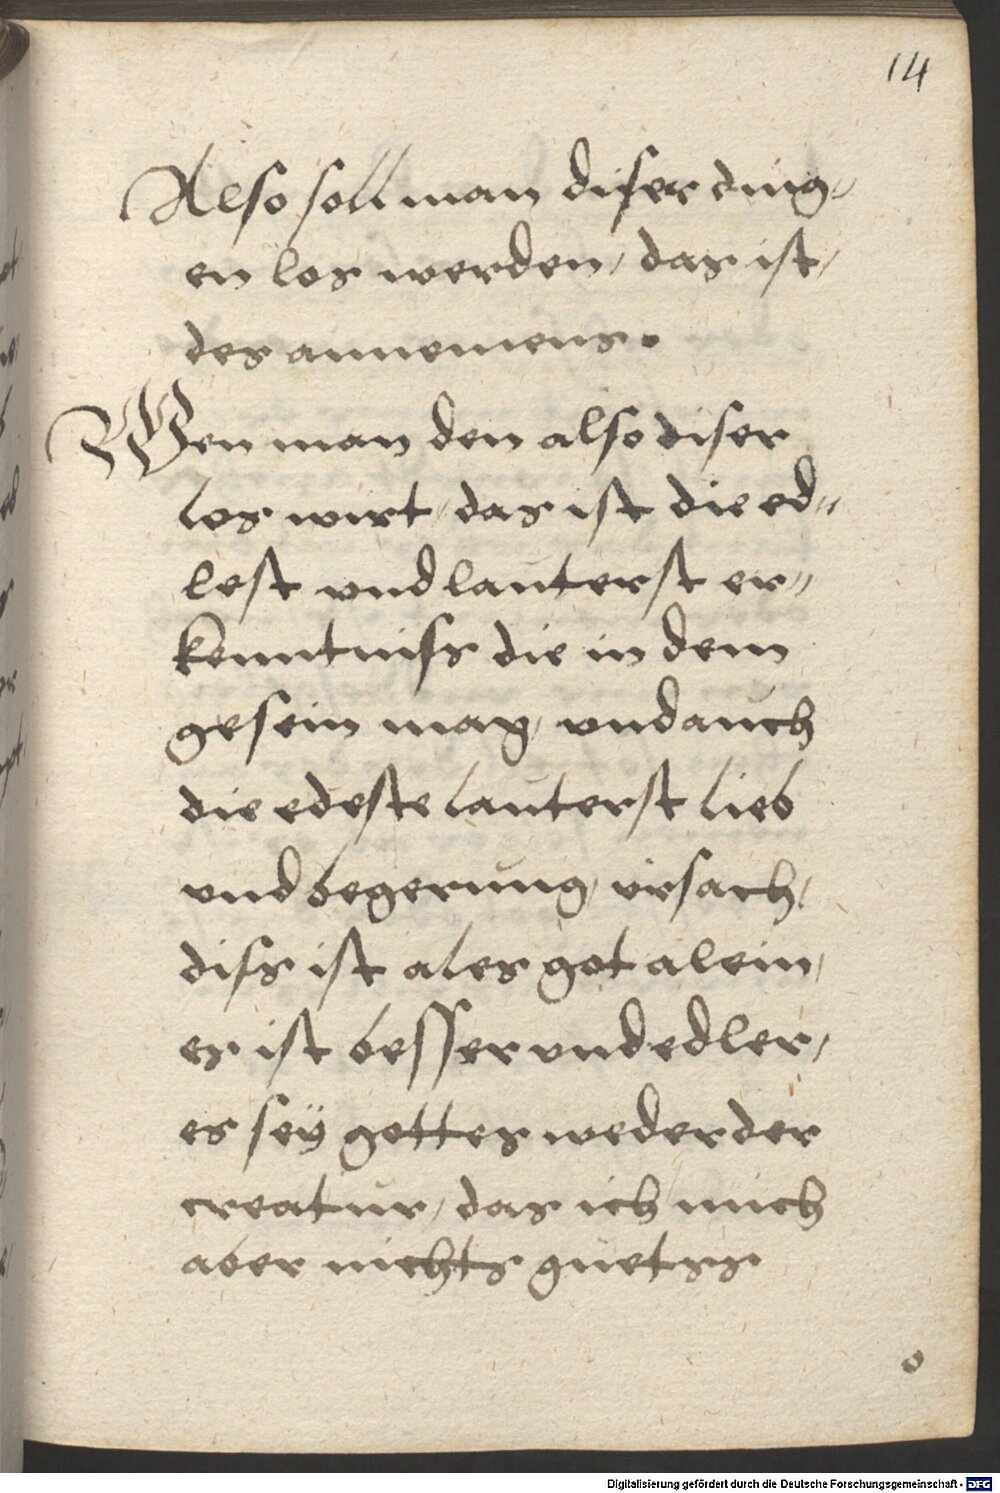 14
Also soll man diser ding-
en los werden / das ist /
des annemens.
Wen man den also diser
los wirt / das ist die ed-
lest vnd lauterst er-
kenntniss die in dem
gesein mag / vnd auch
die edeste lauterst lieb
vnd begerung / vrsach /
diss ist ales got alein /
es ist besser vnd edler /
es sey gottes weder der
creatur / das ich mich
aber nichts guetss
o
Digitalisierung gefördert durch die Deutsche Forschungsgemeinschaft - DFG